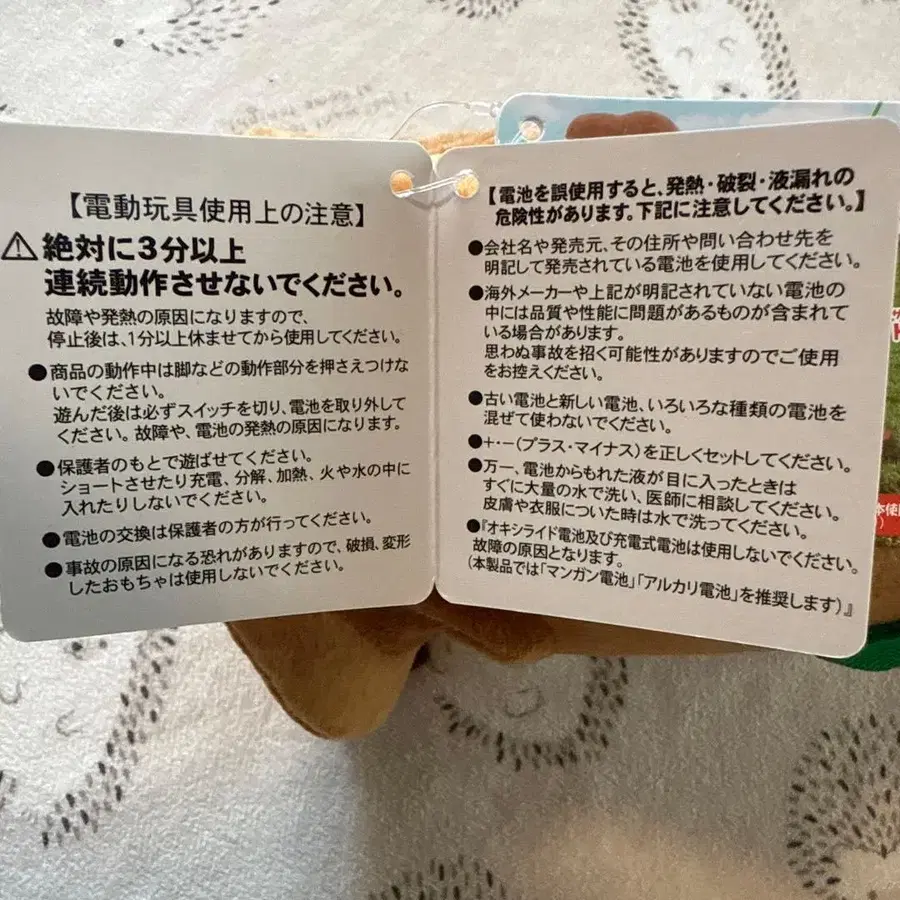 【電動玩具使用上の注意】
⚠絶対に3分以上
連続動作させないでください。
故障や発熱の原因になりますので、
停止後は、1分以上休ませてから使用してください。
●商品の動作中は脚などの動作部分を押さえつけな
いでください。
遊んだ後は必ずスイッチを切り、電池を取り外して
ください。故障や、電池の発熱の原因になります。
●保護者のもとで遊ばせてください。
ショートさせたり充電、分解、加熱、火や水の中に
入れたりしないでください。
●電池の交換は保護者の方が行ってください。
●事故の原因になる恐れがありますので、破損、変形
したおもちゃは使用しないでください。
【電池を誤使用すると、発熱・破裂・液漏れの
危険性があります。下記に注意してください。】
●会社名や発売元、その住所や問い合わせ先を
明記して発売されている電池を使用してください。
●海外メーカーや上記が明記されていない電池の
中には品質や性能に問題があるものが含まれて
いる場合があります。
思わぬ事故を招く可能性がありますのでご使用
をお控えください。
●古い電池と新しい電池、いろいろな種類の電池を
混ぜて使わないでください。
●+・-(プラス・マイナス)を正しくセットしてください。
●万一、電池からもれた液が目に入ったときは
すぐに大量の水で洗い、医師に相談してください。
皮膚や衣服についた時は水で洗ってください。
●『オキシライド電池及び充電式電池は使用しないでください。
故障の原因となります。
(本製品では「マンガン電池」「アルカリ電池」を推奨します)』